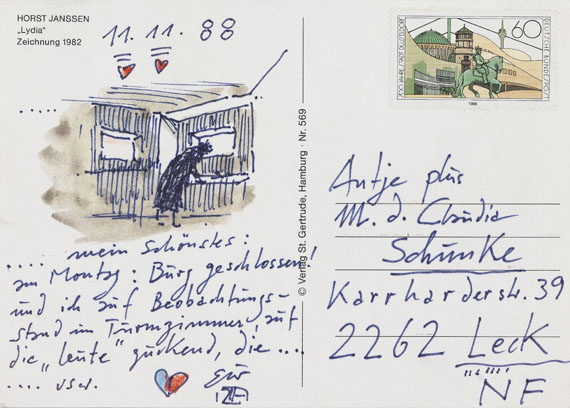 HORST JANSSEN
„Lydia"
Zeichnung 1982
11. 11. 88
.....
.... mein Schönstes:
am Montag: Burg geschlossen!
und ich auf Beobachtungs-
stand im Turmzimmer, auf
die „Leute" guckend, die ...
.... usw.
Euer
© Verlag St. Gertrude, Hamburg · Nr. 569
60
DEUTSCHE BUNDESPOST
700 JAHRE STADT DÜSSELDORF
1988
Antje plus
M. d. Claudia
Schunke
Karrharderstr. 39
2262 Leck
NF